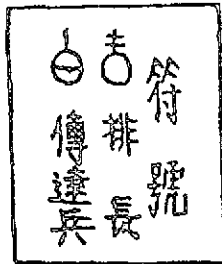 符號
排長
傳達兵